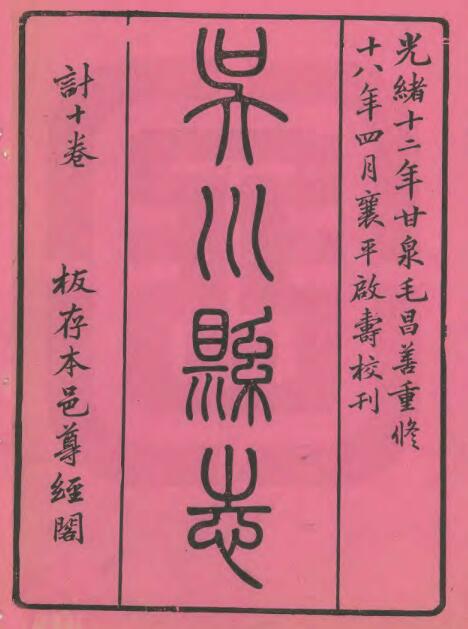 光緒十二年甘泉毛昌善重修
十八年四月襄平啟壽校刊
吳川縣志
計十卷 板存本邑尊經閣